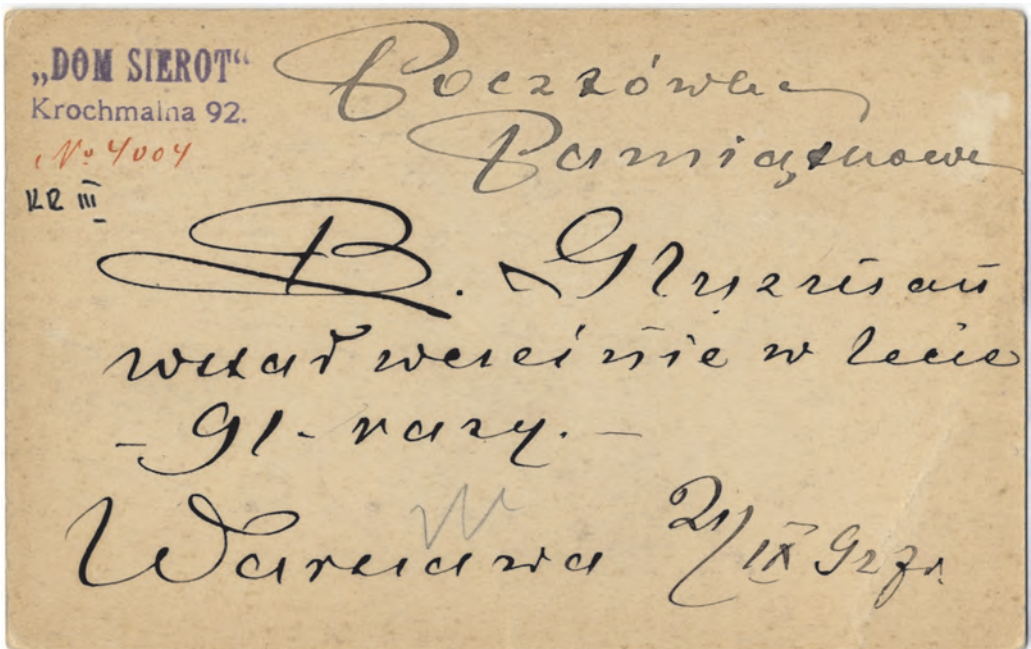 „DOM SIEROT“
Krochmalna 92.
№ 4004
KR III
Pocztówka
Pamiątkowa
B.
wstał wcześnie w lecie
- 91 - razy. -
Warszawa 21/IX 927r.